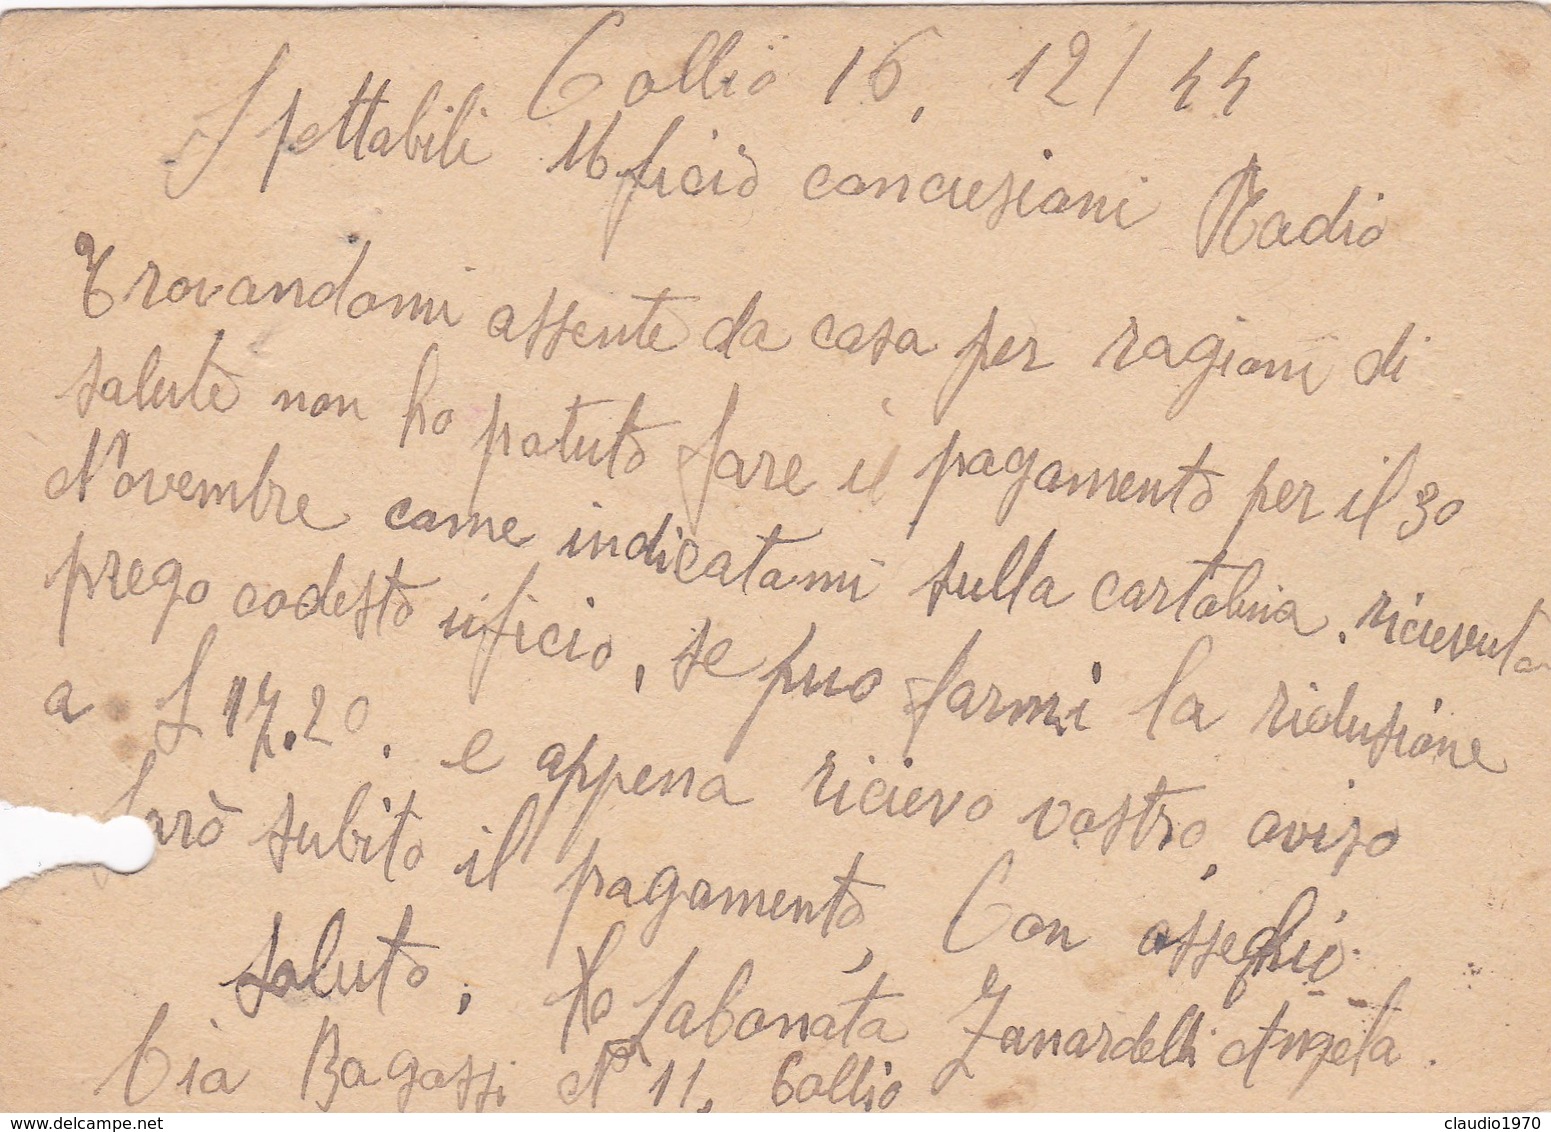 Collio 16, 12/44
Spettabili Uficiò conciesioni Radio
Trovandomi assente da casa per ragioni di
salute non ho potuto fare il pagamento per il 30
Novembre come indicatami sulla cartolina. ricievuta
prego codesto uficio, se puo farmi la ridusione
a £ 17,20. e appena ricievo vostro, aviso
farò subito il pagamento, Con osseghio
saluto, La Labonata Zanardelli Angela.
Via Bagossi N° 11, Collio
delcampe.net
claudio1970